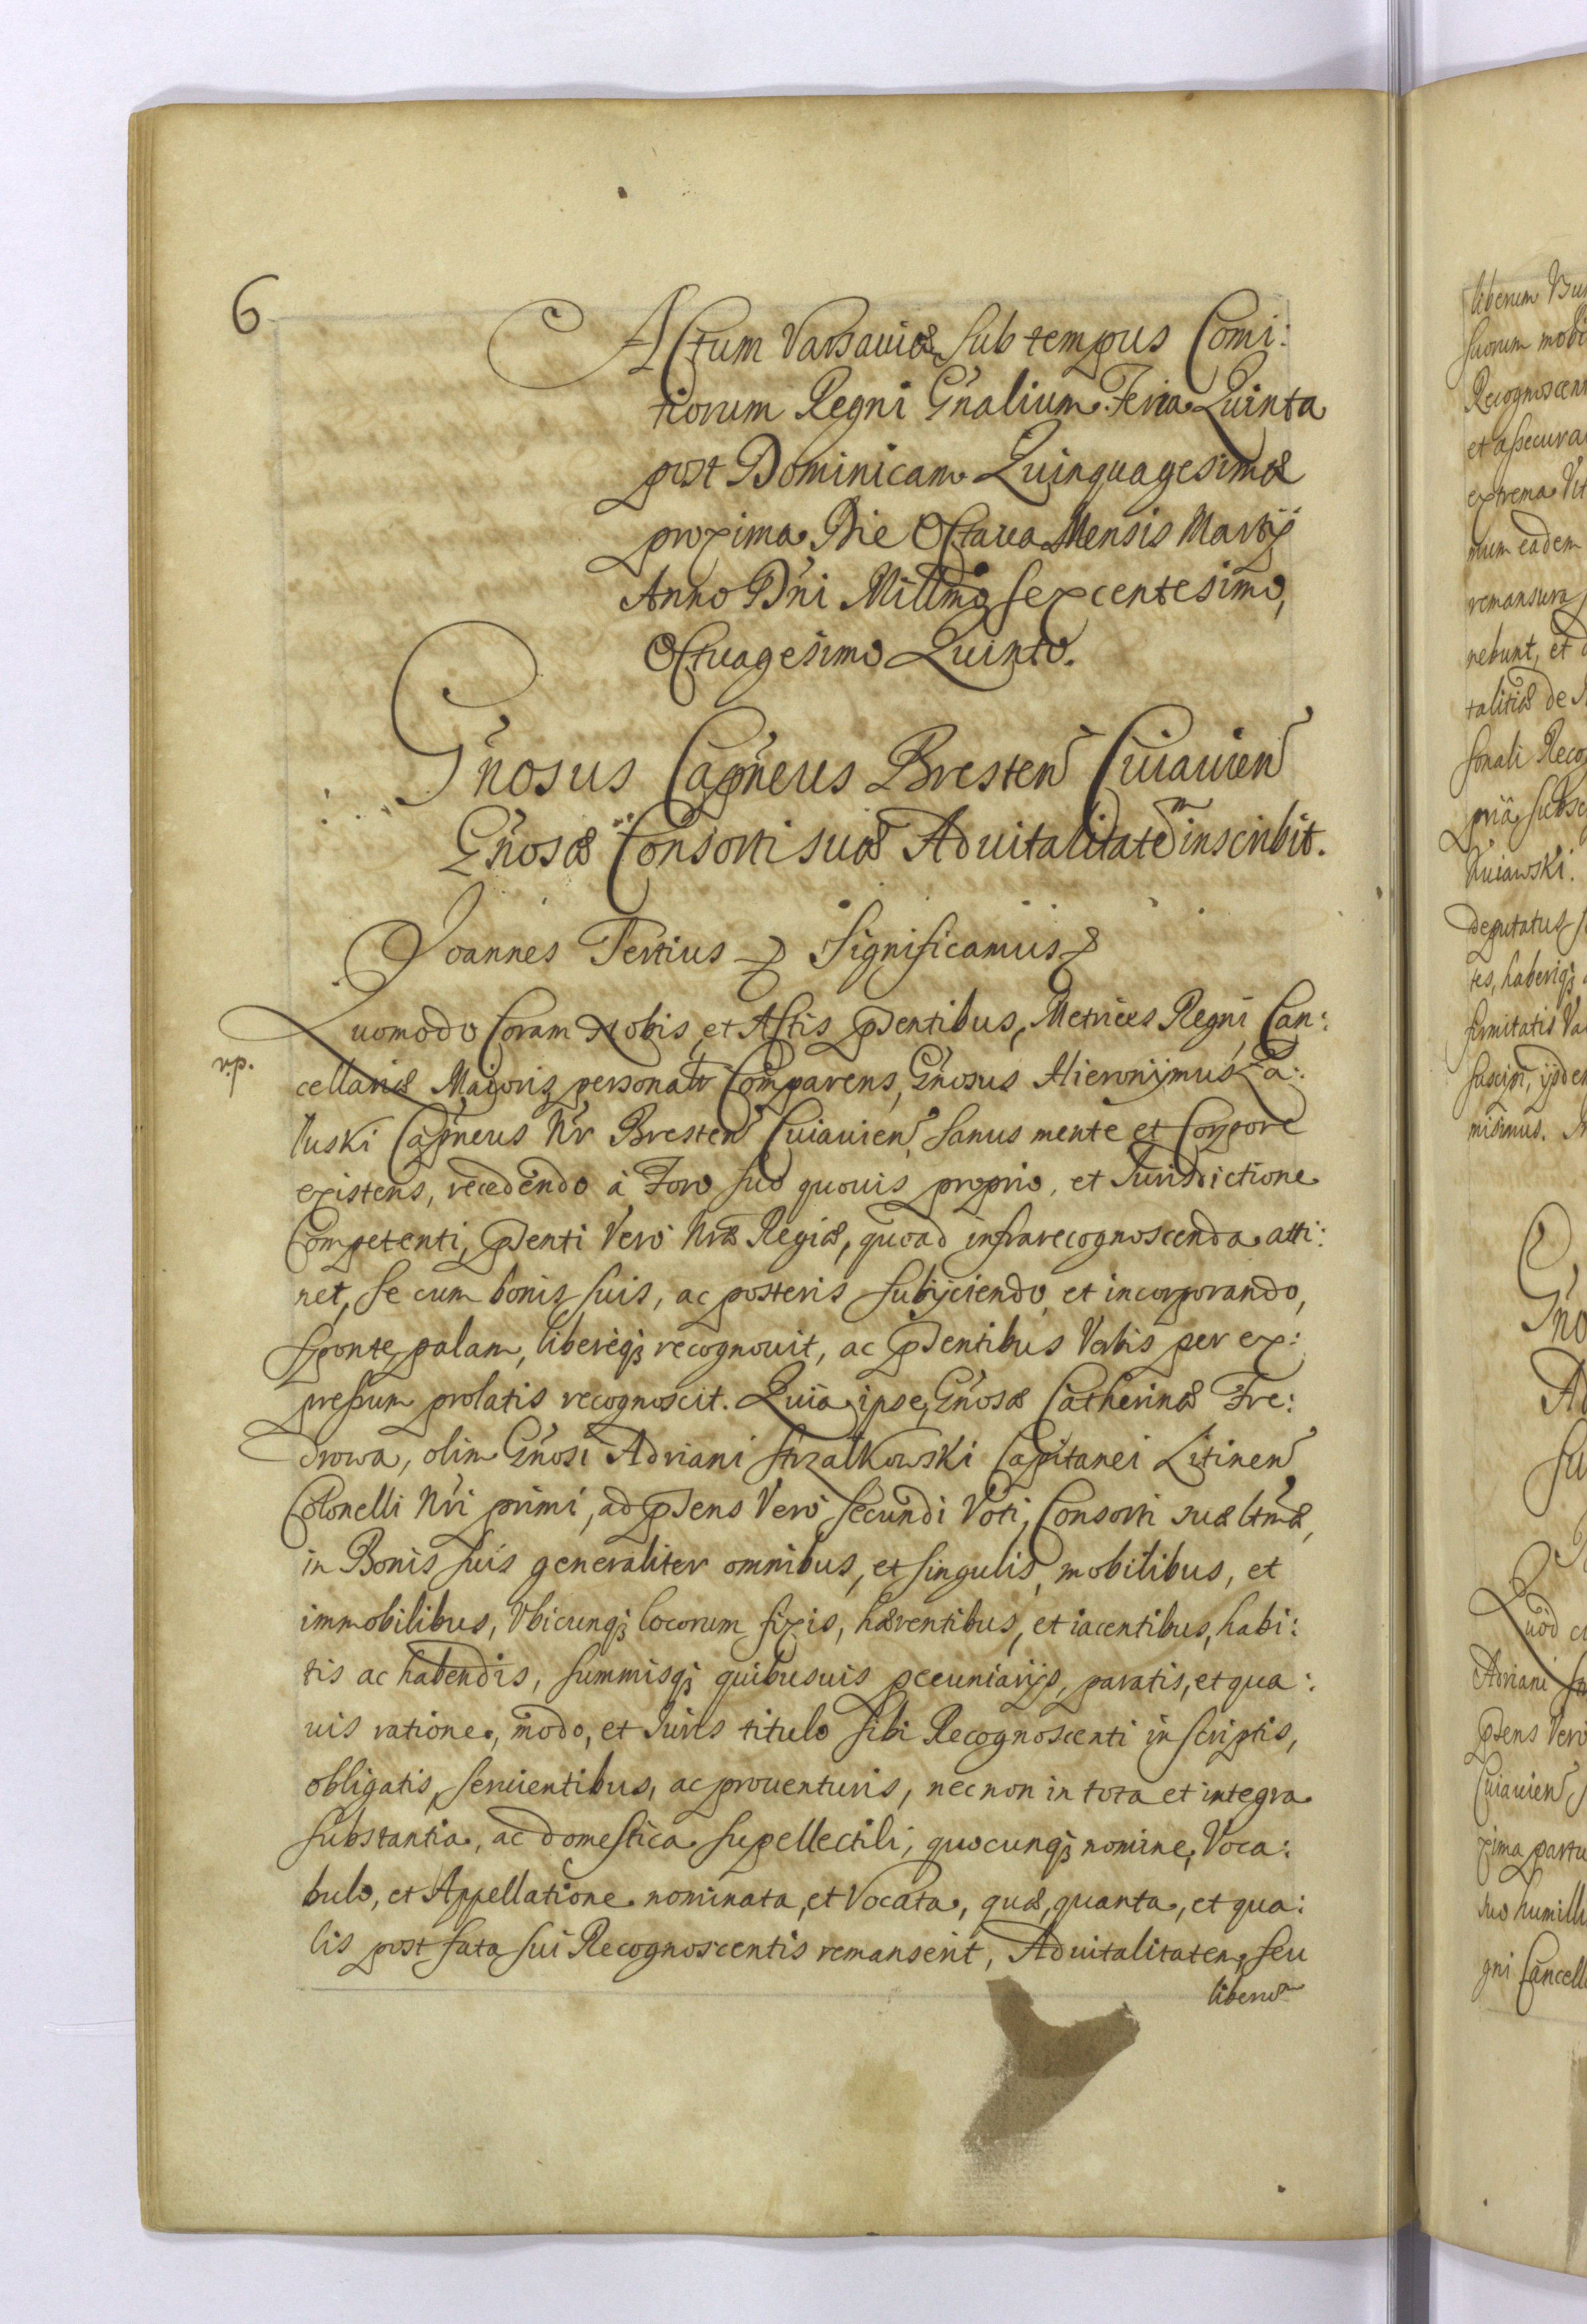 6
Actum Varsauiæ sub tempus Comi:
tiorum Regni Gnalium. Feria Quinta
post Dominicam Quinquagesimæ
proxima Die Octaua Mensis Martij
Anno Dni Millmo sexcentesimo,
Octuagesimo Quinto.
Gnosus Capneus Bresten Cuiauien
Gnosæ Consorti suæ Aduitalitatem inscribit.
Joannes Tertius Significamus
Quomodo Coram Nobis, et Actis pntibus, Metrices Regni, Can:
rp.
cellariæ Maioris, personalr Comparens, Gnosus Hieronijmus Za:
luski Capneus Nr Bresten Cuiauien, sanus mente et Corpore
existens, recedendo à Foro suo quouis proprio, et Jurisdictione
Competenti, pnti Verò Nræ Regiæ, quoad infrarecognoscenda atti:
net, se cum bonis suis, ac posteris subijciendo, et incorporando,
sponte, palam, liberèq; recognouit, ac pntibus Verbis per ex:
pressum prolatis recognoscit. Quia ipse, Gnosæ Catherinæ Fre:
drowa, olim Gnosi Adriani Strzałkowski Capitanei Litinen
Colonelli Nri primi, ad pns Verò secundi Voti, Consorti suæ ltmæ,
in Bonis suis generaliter omnibus, et singulis, mobilibus, et
immobilibus, Vbicunq; locorum fixis, hærentibus, et iacentibus, habi:
tis ac habendis, summisq; quibusuis pecuniarijs, paratis, et qua:
uis ratione, modo, et Juris titulo sibi Recognoscenti inscriptis,
obligatis, seruientibus, ac prouenturis, nec non in tota et integra
substantia, ac domestica supellectili, quocunq; nomine, Voca:
bulo, et Appellatione nominata, et Vocata, quæ, quanta, et qua:
lis post fata sui Recognoscentis remanserit, Aduitalitatem, seu
liberum
liberum
suorum
et assecura
extrema Vit
mum eadem
remansura
nebunt, et
talitiæ de
sonali Reco
Kuiawski.
deputatus
misimus.
Gno
Ad
Adriani
pns Verò
Cuiauien
suo humill
gni Cancell